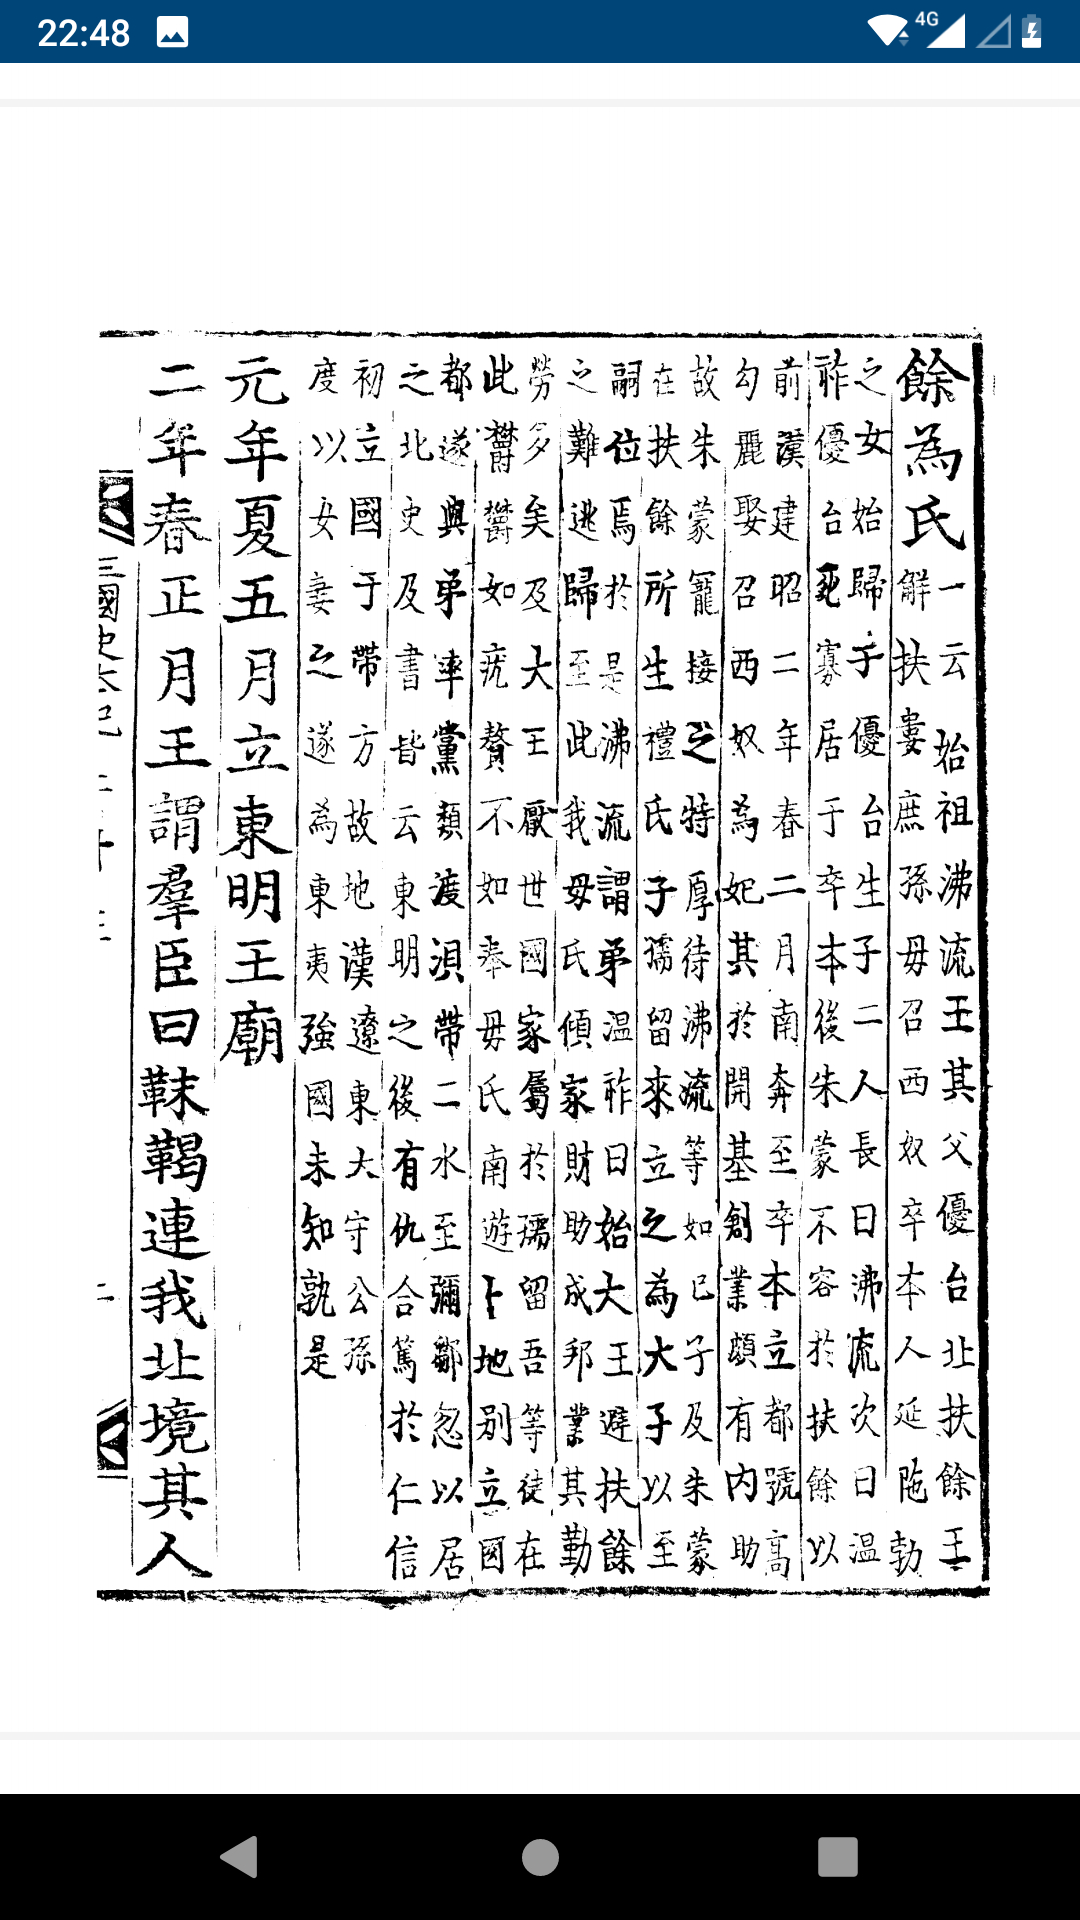 22:48
4G
餘為氏 一云始祖沸流王其父優台北扶餘王
解扶婁庶孫母召西奴卒本人延陁勃
之女始歸于優台生子二人長曰沸流次曰温
祚優台死寡居于卒本後朱蒙不容於扶餘以
前漢建昭二年春二月南奔至卒本立都號高
勾麗娶召西奴為妃其於開基創業頗有内助
故朱蒙寵接之特厚待沸流等如已子及朱蒙
在扶餘所生禮氏子孺留來立之為大子以至
嗣位焉於是沸流謂弟温祚曰始大王避扶餘
之難逃歸至此我母氏傾家財助成邦業其勤
勞多矣及大王厭世國家屬於孺留吾等徒在
此鬱鬱如疣贅不如奉母氏南遊卜地别立國
都遂與弟率黨類渡浿帶二水至彌鄒忽以居
之北史及書皆云東明之後有仇合篤於仁信
初立國于帶方故地漢遼東大守公孫
度以女妻之遂為東夷強國未知孰是
元年夏五月立東明王廟
二年春正月王謂羣臣曰靺鞨連我北境其人
三國史本紀二十三
二